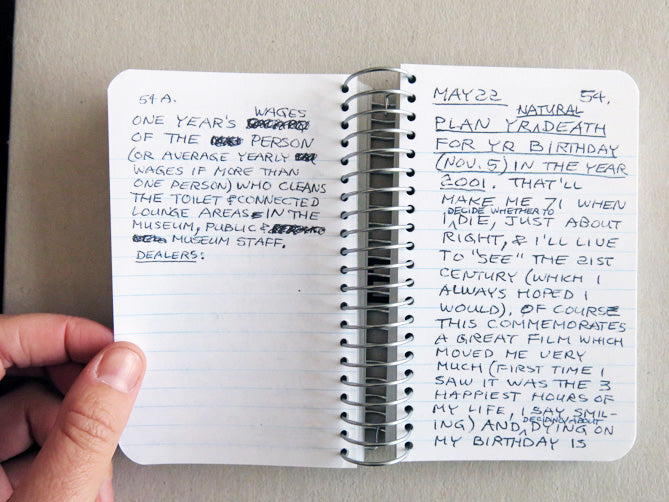 54A.
WAGES
ONE YEAR'S
OF THE PERSON
(OR AVERAGE YEARLY
WAGES IF MORE THAN
ONE PERSON) WHO CLEANS
THE TOILET & CONNECTED
LOUNGE AREAS IN THE
MUSEUM, PUBLIC &
MUSEUM STAFF.
DEALERS:
MAY 22 54.
NATURAL
PLAN YR ∧ DEATH
FOR YR BIRTHDAY
(NOV. 5) IN THE YEAR
2001. THAT'LL
MAKE ME 71 WHEN
DECIDE WHETHER TO
I ∧ DIE, JUST ABOUT
RIGHT, & I'LL LIVE
TO "SEE" THE 21ST
CENTURY (WHICH I
ALWAYS HOPED I
WOULD), OF COURSE
THIS COMMEMORATES
A GREAT FILM WHICH
MOVED ME VERY
MUCH (FIRST TIME I
SAW IT WAS THE 3
HAPPIEST HOURS OF
MY LIFE, I SAY SMIL-
DECIDING ABOUT
ING) AND ∧ DYING ON
MY BIRTHDAY IS